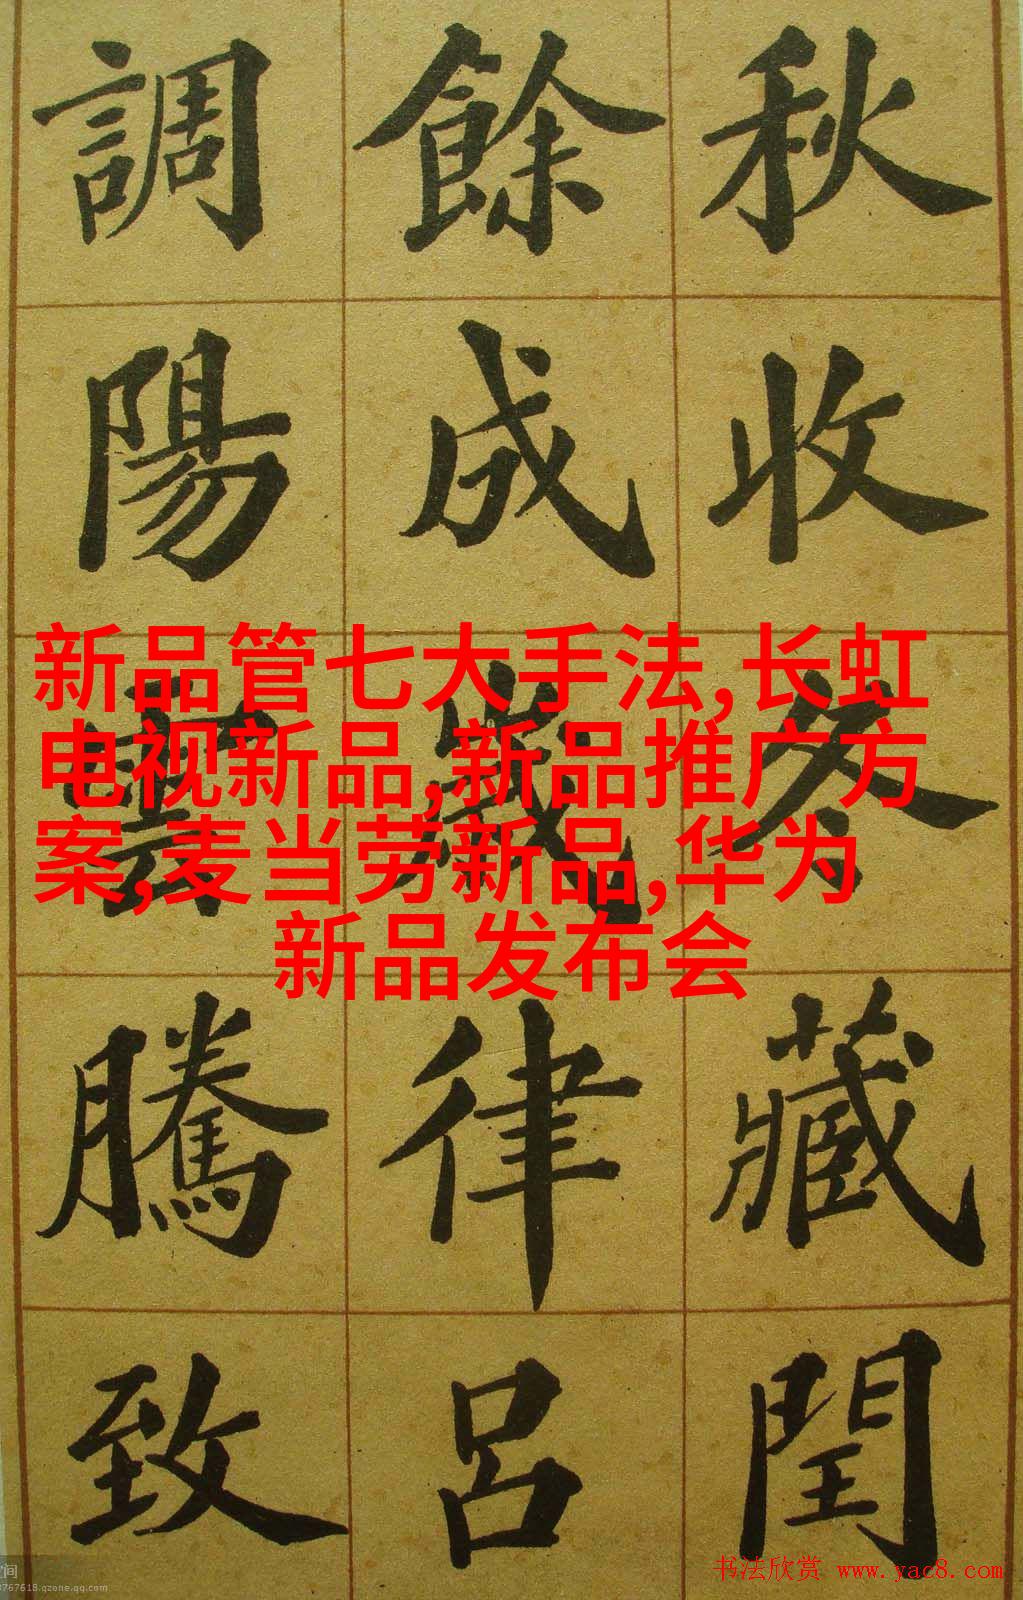 秋收冬藏閏
餘成歲律呂
調陽雲騰致
新品管七大手法,长虹
电视新品,新品推广方
案,麦当劳新品,华为
新品发布会
书法欣赏 www.yac8.com
空间
3767618.qzone.qq.com